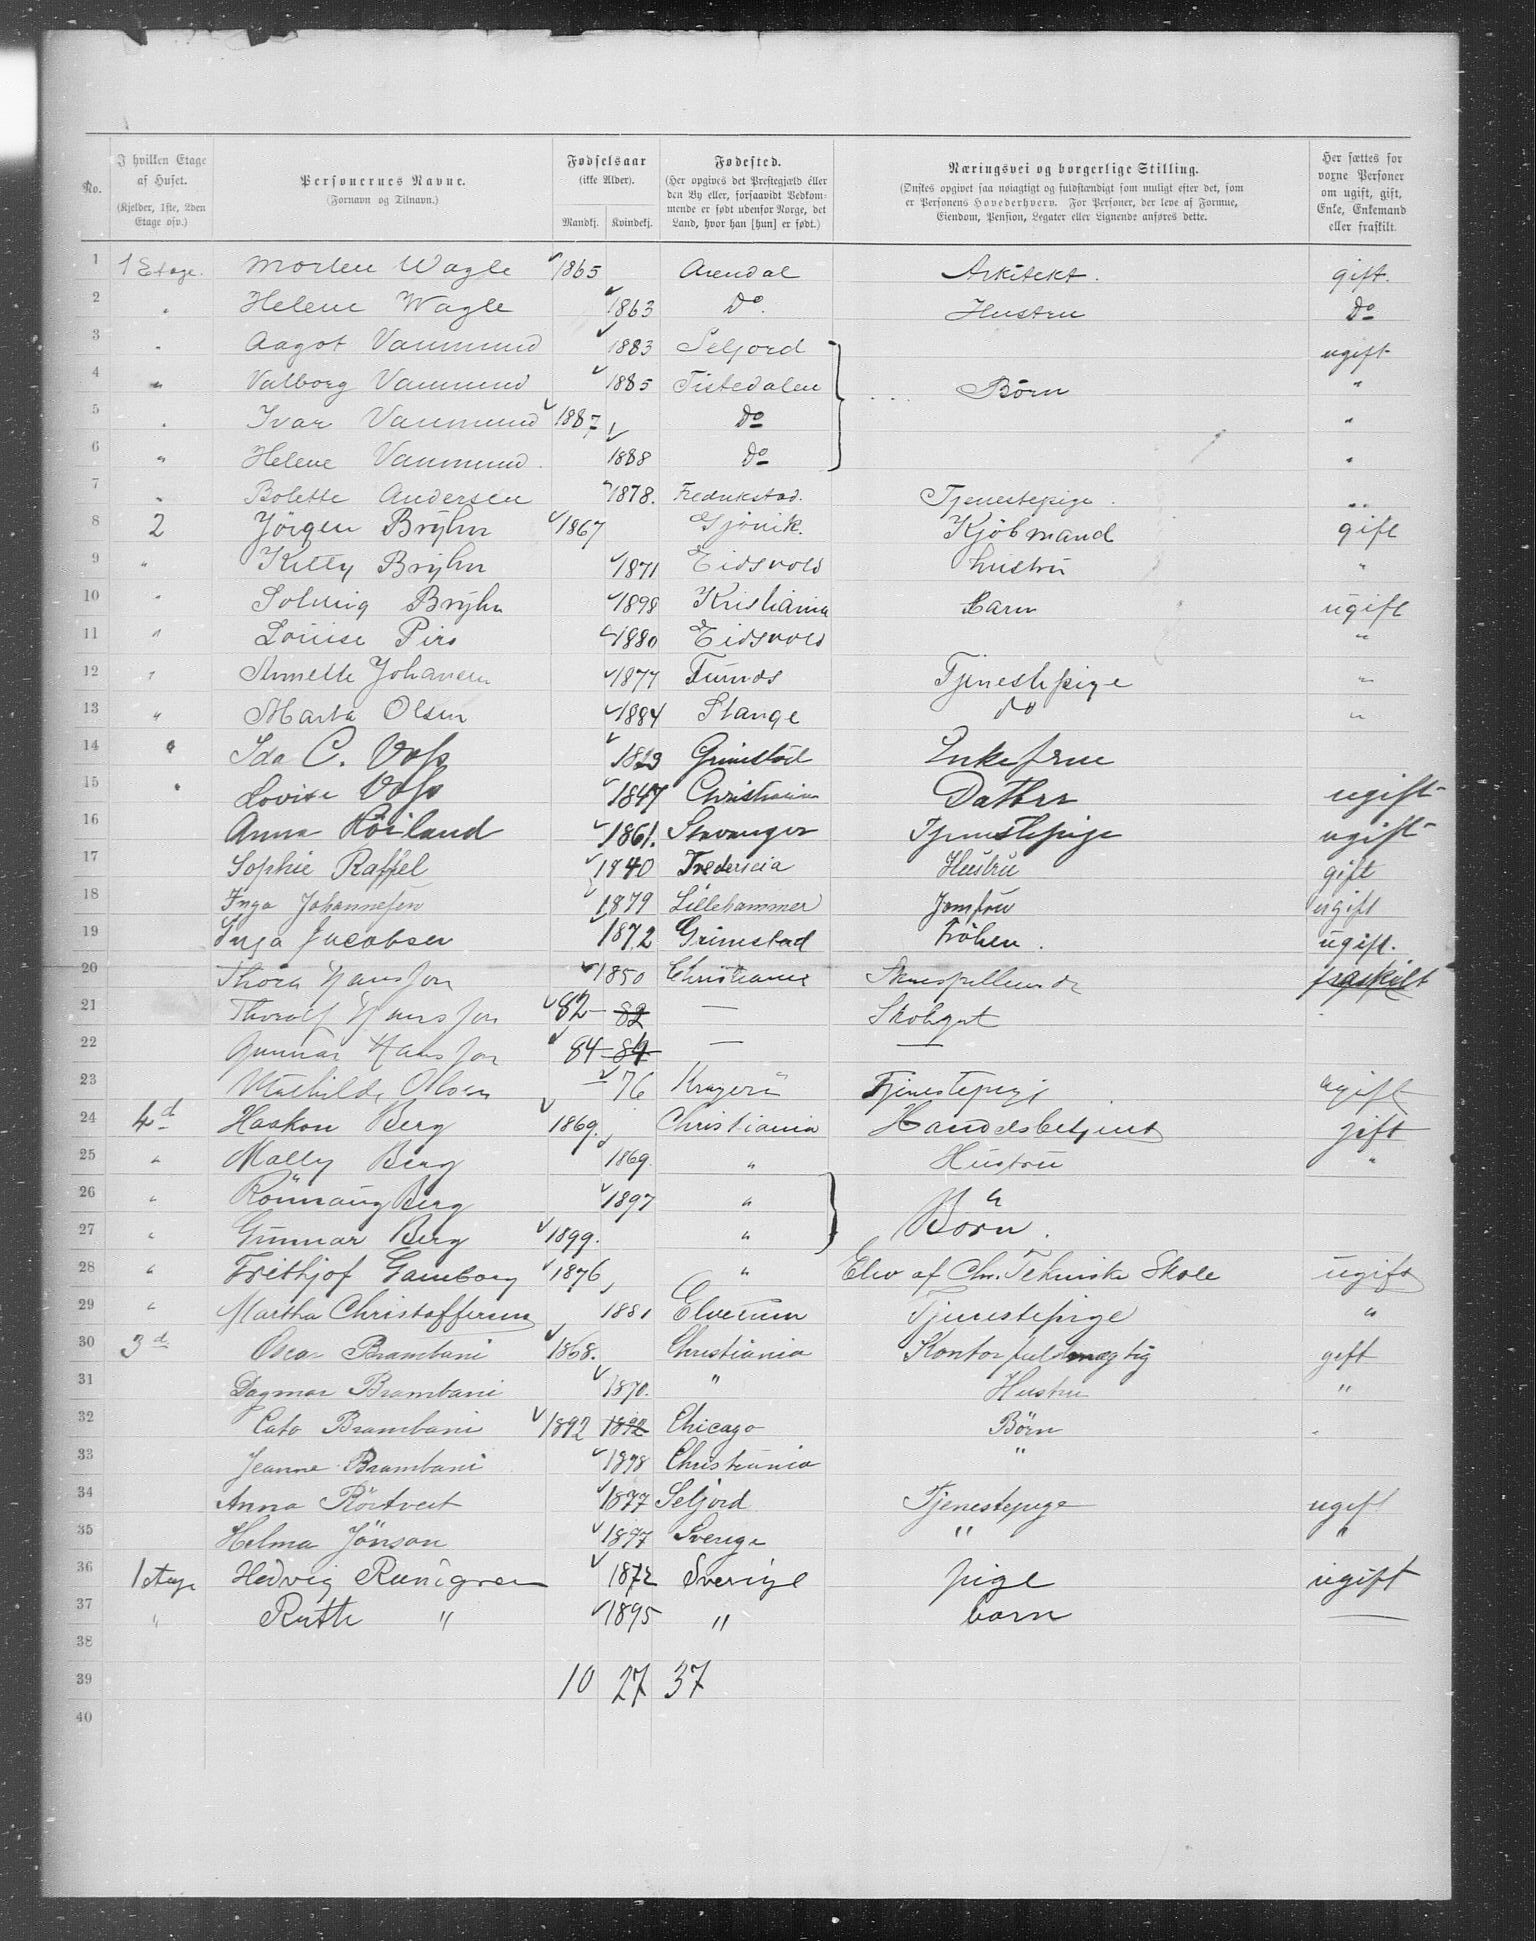 No. | I hvilken Etage af Huset. (Kjelder, 1ste, 2den Etage osv.) | Personernes Navne. (Fornavn og Tilnavn.) | Fødselsaar (ikke Alder). Mandkj. Kvindekj. | Fødested. (Her opgives det Prestegjæld eller den By eller, forsaavidt Vedkommende er født udenfor Norge, det Land, hvor han [hun] er født.) | Næringsvei og borgerlige Stilling. (Ønskes opgivet saa nøiagtigt og fuldstændigt som muligt efter det, som er Personens Hovederhverv. For Personer, der leve af Formue, Eiendom, Pension, Legater eller Lignende anføres dette.) | Her sættes for voxne Personer om ugift, gift, Enke, Enkemand eller fraskilt.
1 1 Etage. Morten Wagle 1865 Arendal Arkitekt. gift.
2 " Helene Wagle 1863 Do. Hustru Do
3 " Aagot Vammund 1883 Seljord ugift
4 " Valborg Vammund 1885 Tistedalen Børn "
5 " Ivar Vammund 1887 Do "
6 " Helene Vammund 1888 Do "
7 " Bolette Andersen 1878. Fredrikstad. Tjenestepige. "
8 2 Jörgen Brÿhn 1867 Gjövik. Kjöbmand gift
9 " Kitty Brÿhn 1871 Eidsvold hustru "
10 " Solveig Brÿhn 1898 Kristiania barn ugift
11 " Louise Piro 1880 Eidsvold "
12 " Annette Johansen 1877 Tjenestepige "
13 " Marta Olsen 1884 Stange do "
14 " Ida C. Voss Grimstad Enkefrue
15 " Lovise Voss 1847 Christiania Datter ugift
16 Anna 1861. Stavanger Tjenestepige ugift
17 Sophie Raffel 1840 Fredericia Hustru gift
18 Inga Johannesen 1879 Lillehammer Jomfru ugift
19 Inga Jacobsen 1872 Grimstad Fröken. ugift.
20 Thora Hansson 1850 Christiania Skuespillerinde fraskilt
21 Thoralf Hansson 82 82 — Skolegut
22 Gunnar Hansson 84 84 — —
23 Mathilde Olsen — 76 Kragerö Tjenestepige ugift
24 4d Haakon Berg 1869. Christiania Handelsbetjent gift
25 " Mally Berg 1869. " Hustru "
26 " Rönnaug Berg 1897 " Börn.
27 " Gunnar Berg 1899. "
28 " Frithjof Gamborg 1876 " Elev af Chr. Tekniske Skole ugift
29 " Martha Christoffersen 1881 Elverum Tjenestepige "
30 3d Oscar Brambani 1868. Christiania Kontorfuldmægtig gift
31 Dagmar Brambani 1870. " Hustru "
32 Cato Brambani 1892 1892 Chicago Børn
33 Jeanne Brambani 1898 Christiania "
34 Anna Rörtveit 1877 Seljord Tjenestepige ugift
35 Helma Jönson 1877 Sverige " "
36 1 etage Hedvig Rundgren 1872 Sverige pige ugift
37 " Ruth " 1895 " barn —
38
39 10 27 37
40